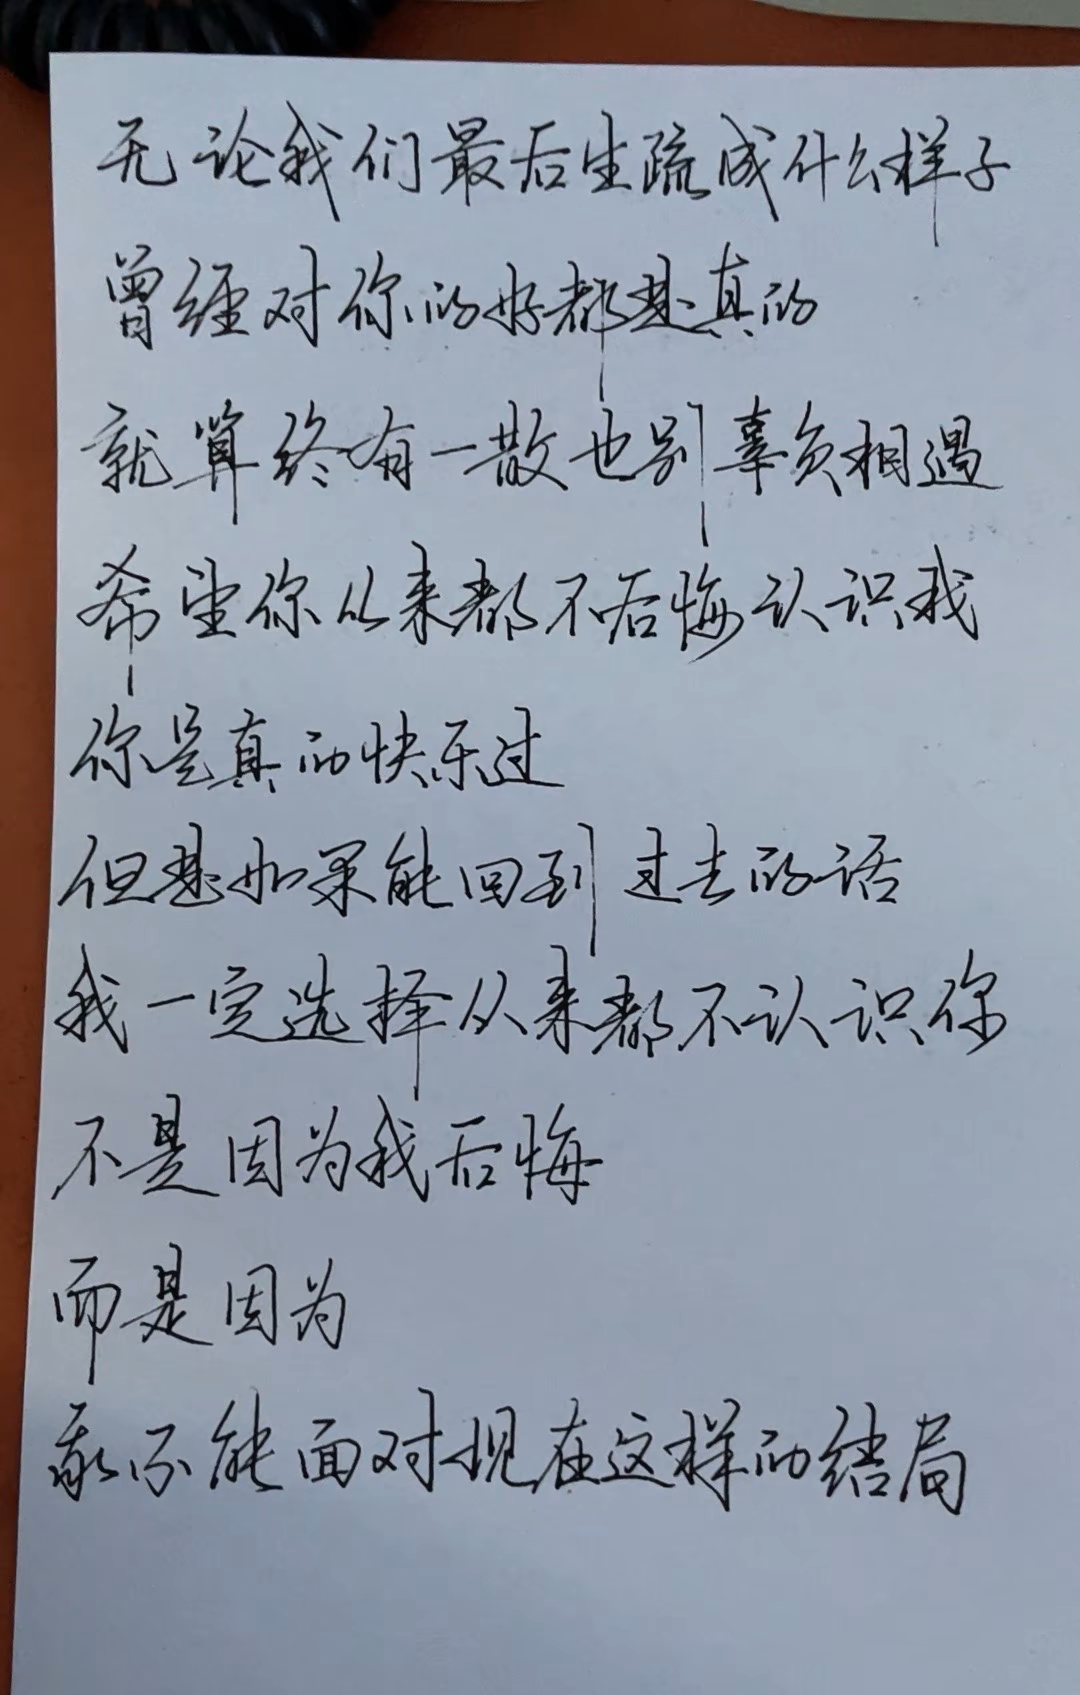 无论我们最后生疏成什么样子
曾经对你的好都是真的
就算终有一散也别辜负相遇
希望你从来都不后悔认识我
你是真的快乐过
但是如果能回到过去的话
我一定选择从来都不认识你
不是因为我后悔
而是因为
我不能面对现在这样的结局